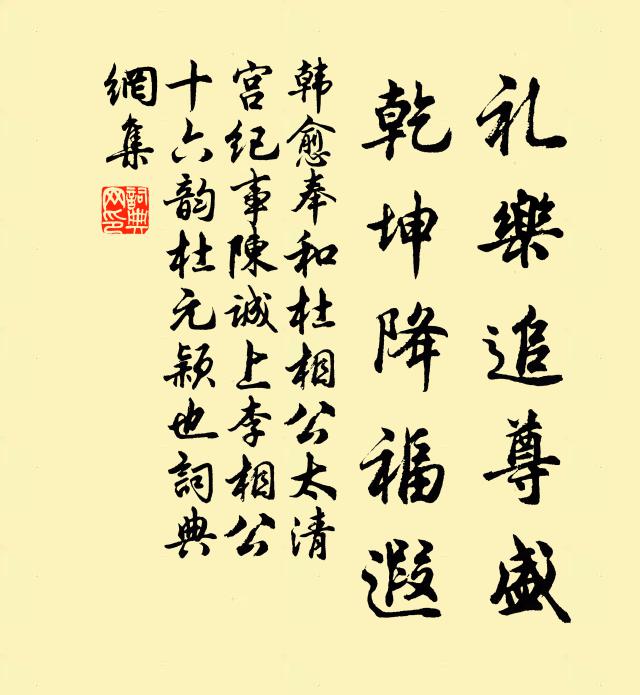 礼樂追尊盛
乾坤降福遐
韩愈奉和杜相公太清
宫纪事陳诚上李相公
十六韵杜元颖也詞典
網集
詞典网印